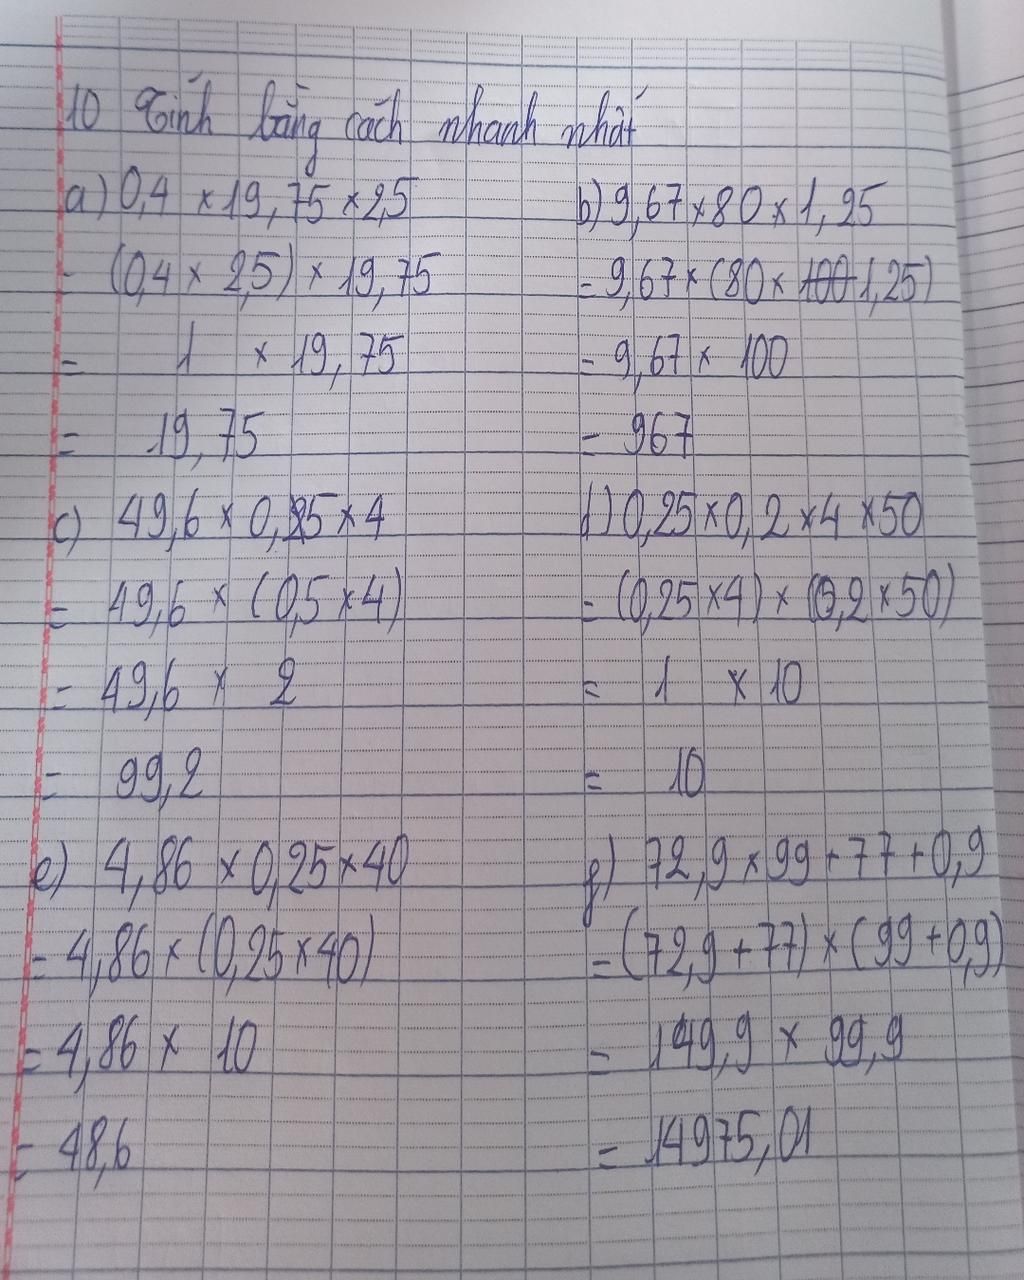 10 Tính bằng cách nhanh nhất
a) 0,4 × 19,75 × 2,5
= (0,4 × 2,5) × 19,75
= 1 × 19,75
= 19,75
b) 9,67 × 80 × 1,25
= 9,67 × (80 × 1,25)
= 9,67 × 100
= 967
c) 49,6 × 0,5 × 4
= 49,6 × (0,5 × 4)
= 49,6 × 2
= 99,2
d) 0,25 × 0,2 × 4 × 50
= (0,25 × 4) × (0,2 × 50)
= 1 × 10
= 10
e) 4,86 × 0,25 × 40
= 4,86 × (0,25 × 40)
= 4,86 × 10
= 48,6
g) 72,9 × 99 + 77 + 0,9
= (72,9 + 77) × (99 + 0,9)
= 149,9 × 99,9
= 14975,01